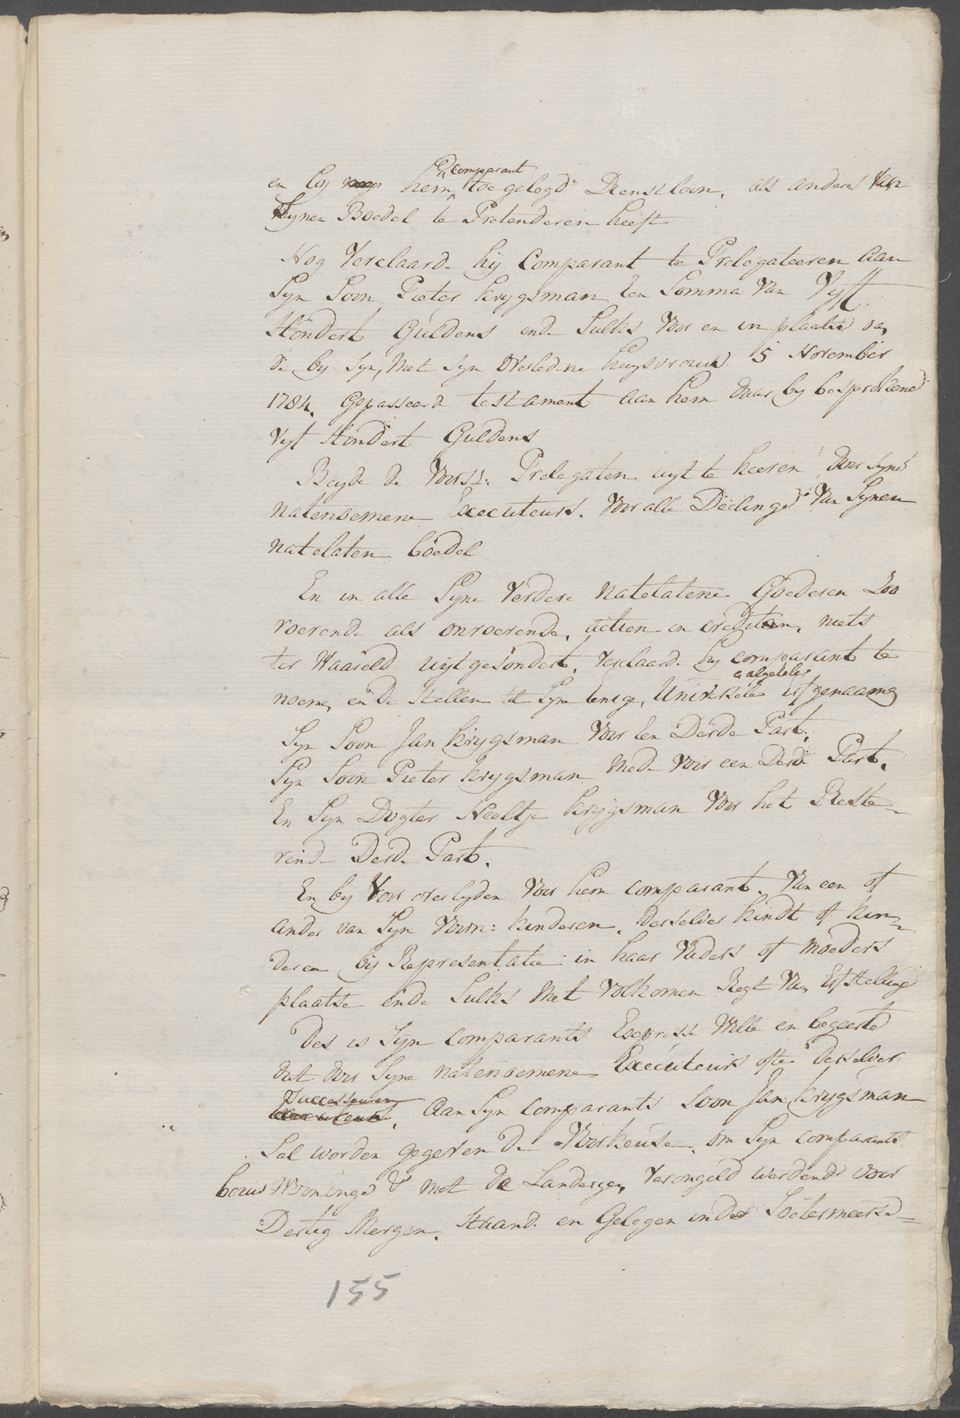 en bij hem comparant toegelegde Dienstloon, als anders van
Synen Boedel te Pretenderen heeft
Nog Verclaard hij Comparant te Prelegateeren aan
Syn Soon Pieter Krygsman Een Somma van Vyf
Hondert Guldens ende Sulks voor en in plaatse va,
de by Syn, met Syn overledene huysvrouw 5 November
1784, gepasseerd testament aan hem daar by besprokene
Vyf Hondert Guldens
Beyde de Voorsz: Prelegaten uyt te keeren door syne
natenoemene Executeurs. voor alle Deelinge van Synen
natelaten boedel
En in alle Syne Verdere natelatene Goederen Zoo
roerende als onroerende, actien en crediten, niets
ter Waareld uytgesondert, verclaard hij comparant te
noeme, ende stellen tot Syne eenige, Universele Erfgenaame
Syn Soon Jan Krygsman voor Een Derde Part.
Syn Soon Pieter Krygsman mede voor een Derde Part.
En Syn Dogter Neeltje Krygsman voor het Reste-
rende Derde Part.
En by Voor overlyden voor hem comparant, van een of
ander van Syn Voorn: kinderen, desselver kindt of kin-
deren bij Representatie in haar Vaders of moeders
plaatse ende Sulks met volkomen Regt van Erfstelling
Des is Syn comparants Expresse Wille en begeerte
dat door Syne natenoemene Executeurs ofte derselver
Successeuren, aan Syn comparants soon Jan Krygsman
Sal worden gegeven de Voorkeuse, om Syn comparants
bouw Woninge met de Landerye, verongeld werdende voor
Dertig Mergen, staande en Gelegen in de Soetermeerse-
155